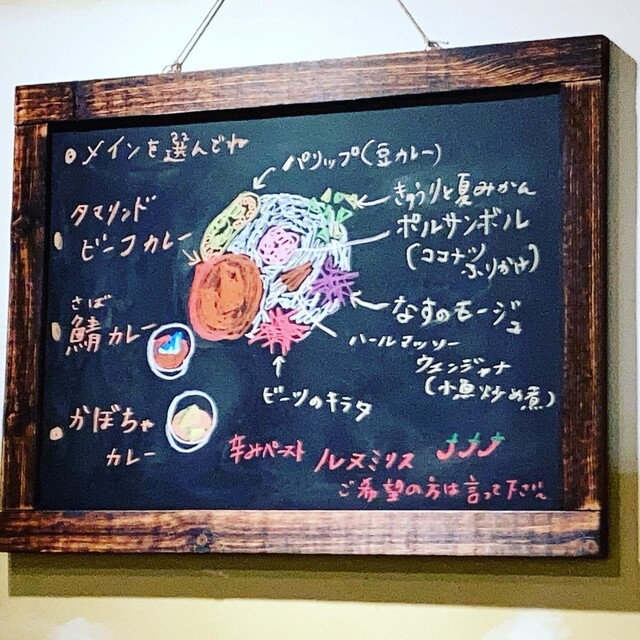 メインを選んでね
タマリンド
ビーフカレー
さば
鯖カレー
かぼちゃ
カレー
パリップ(豆カレー)
きゅうりと夏みかん
ポルサンボル
(ココナツ
ふりかけ)
なすのモージュ
ハールマッソー
ウェンジャナ
(小魚炒め煮)
ビーツのキラタ
辛みペースト ルヌミリス
ご希望の方は言って下さい